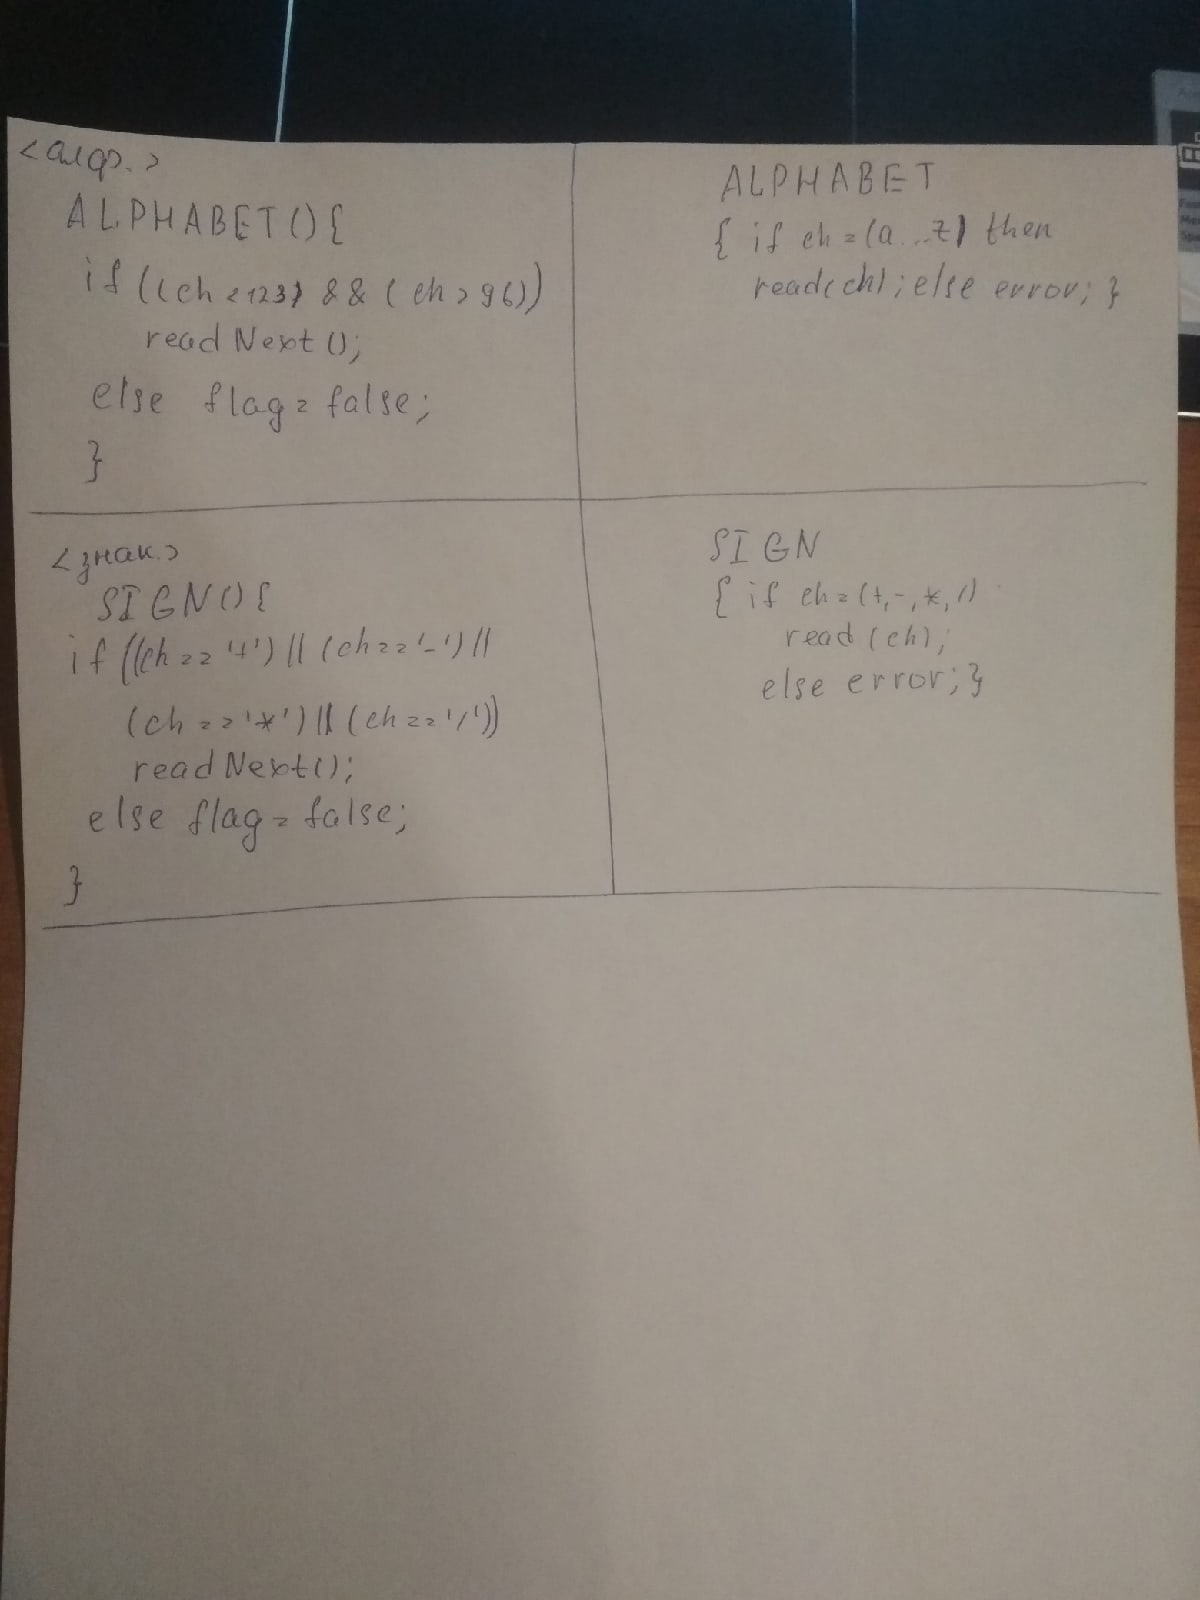 <алф.>
ALPHABET(){
if((ch<123) && (ch>96))
readNext();
else flag = false;
}
ALPHABET
{ if ch = (a...z) then
read(ch); else error; }
<знак.>
SIGN(){
if((ch == '+') || (ch == '-') ||
(ch == '*') || (ch == '/'))
readNext();
else flag = false;
}
SIGN
{ if ch = (+,-,*,/)
read(ch);
else error; }